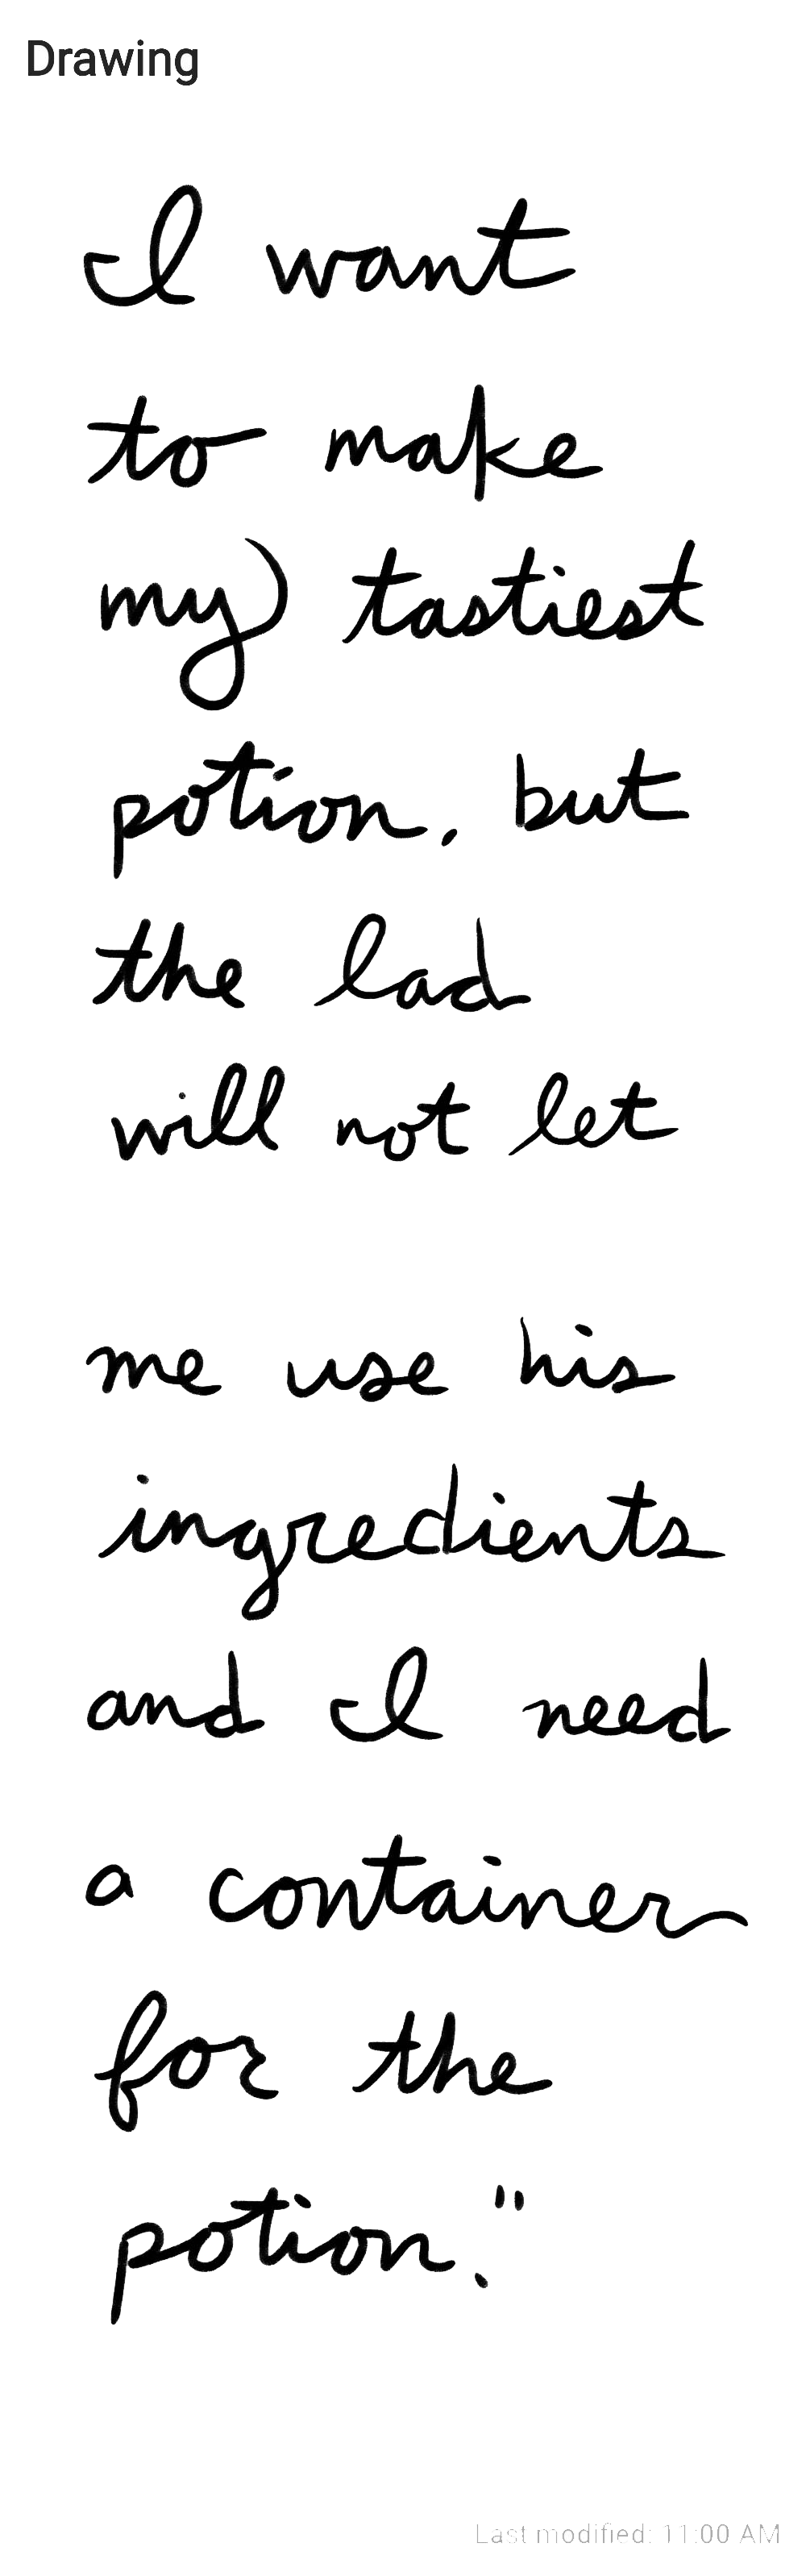 Drawing
I want
to make
my tastiest
potion, but
the lad
will not let
me use his
ingredients
and I need
a container
for the
potion."
Last modified: 11:00 AM